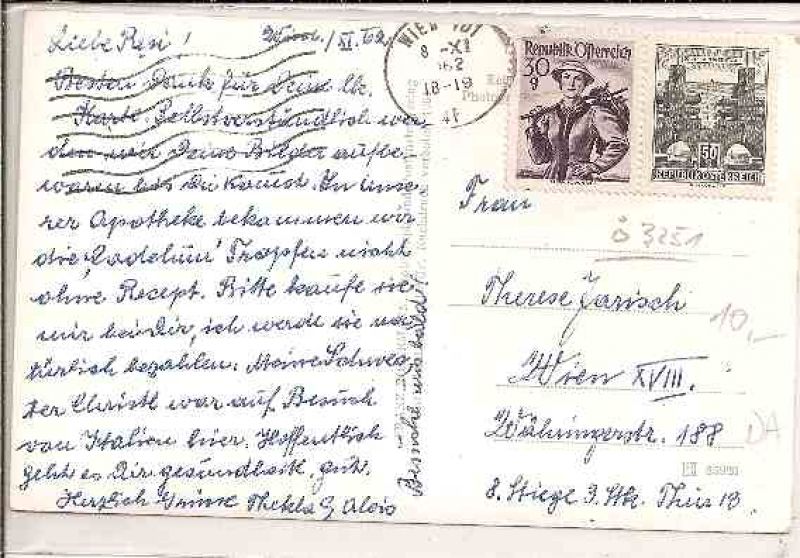 Liebe Resi!
Wien, /XI. 62
Besten Dank für Deine lb.
Karte. Selbstverständlich wer
den wir Deine Bilder aufbe-
waren bis Du kommst. In unse
rer Apotheke bekommen wir
die Tropfen nicht
ohne Recept. Bitte kaufe sie
mir bei Dir, ich werde sie na
türlich bezahlen. Meine Schwes
ter Christl war auf Besuch
von Italien hier. Hoffentlich
geht es Dir gesundheitl. gut.
Herzlich Grüsse Thekla & Alois
Besuche uns bald!
WIEN 101
8.-XI
62
18-19
Republik Österreich
30
g
50
REPUBLIK ÖSTERREICH
Frau
Ö 3251
Therese Jarisch
10,-
Wien XVIII.
Währingerstr. 188
DA
8. Stiege 3. Stk. Thür 13